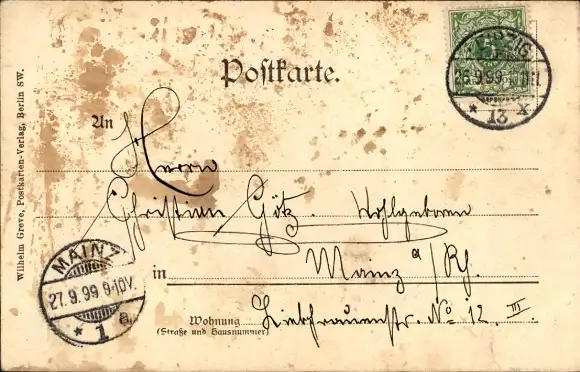 LEIPZIG
26.9.99. 10-11
* 13 X
Postkarte.
An
Herrn
Christian Götz. Wohlgeboren
in Mainz a/Rh.
Wohnung Liebfrauenstr. No 12. III.
(Straße und Hausnummer)
MAINZ
27.9.99 9-10V.
* 1 a.
Wilhelm Greve, Postkarten-Verlag, Berlin SW.